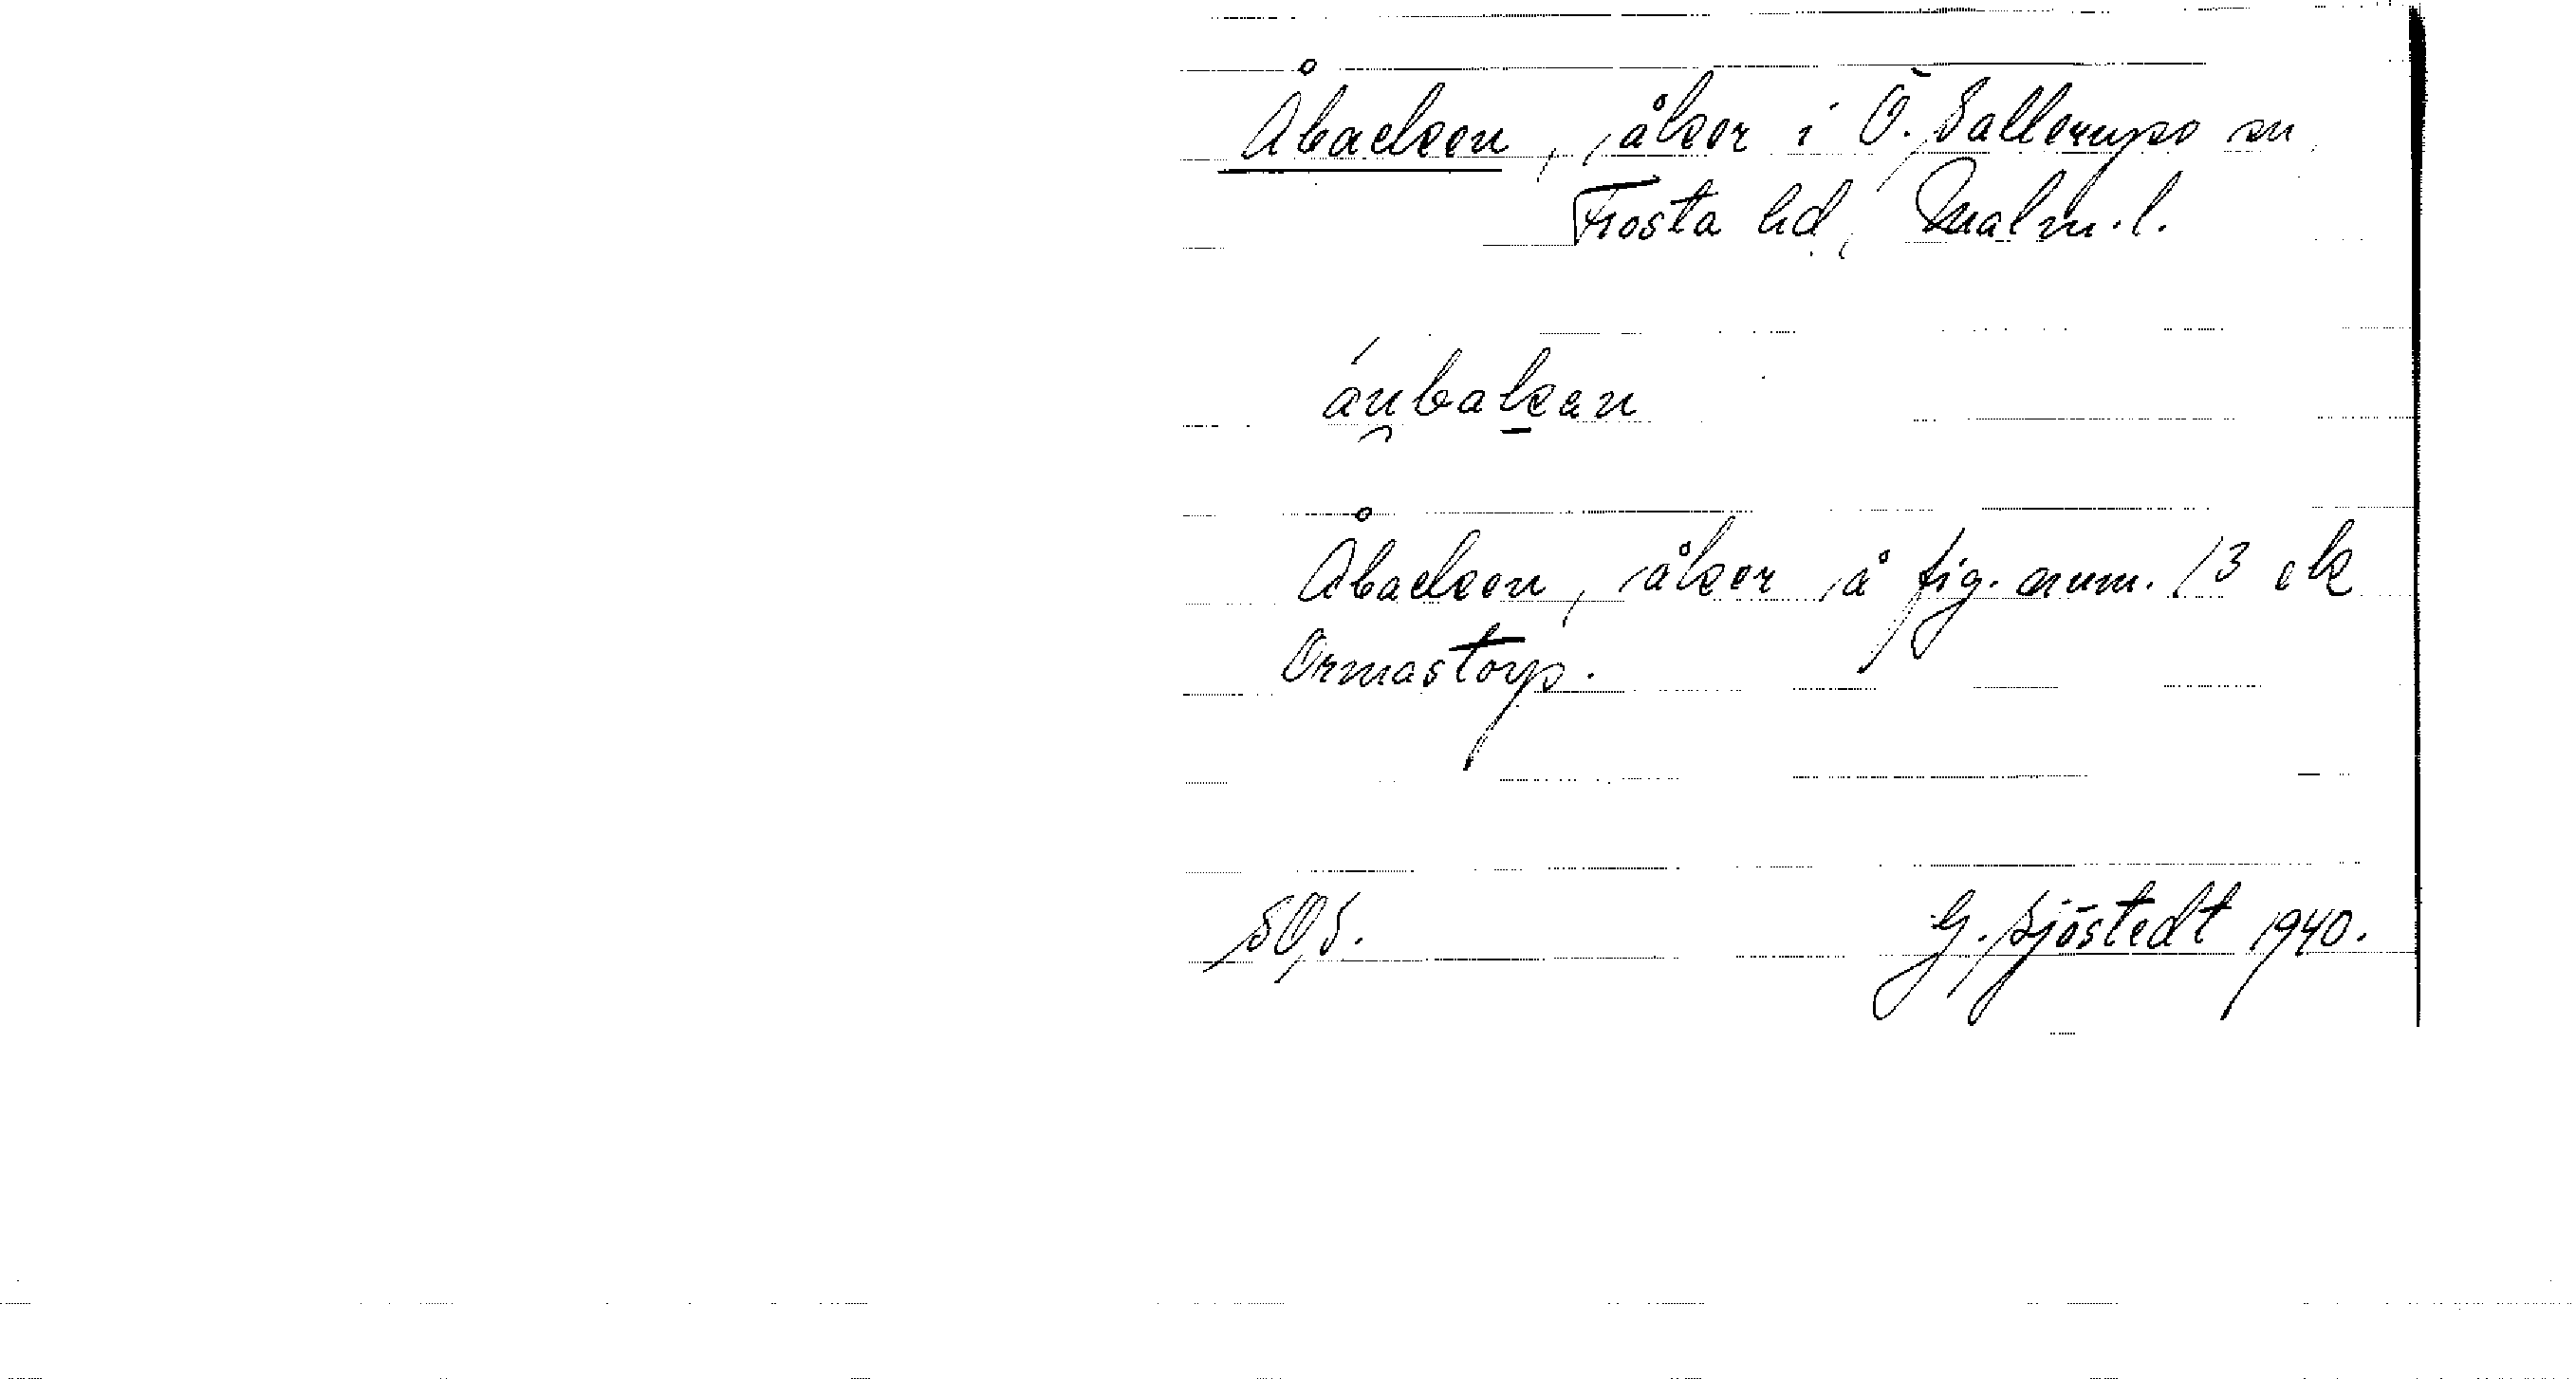 Åbacken, åker i Ö. Sallerups sn,
Frosta hd, Malm.l.
áu̯bakan
Åbacken, åker å fig. num. 13 ek
Ormastorp.
SOS. G. Sjöstedt 1940.